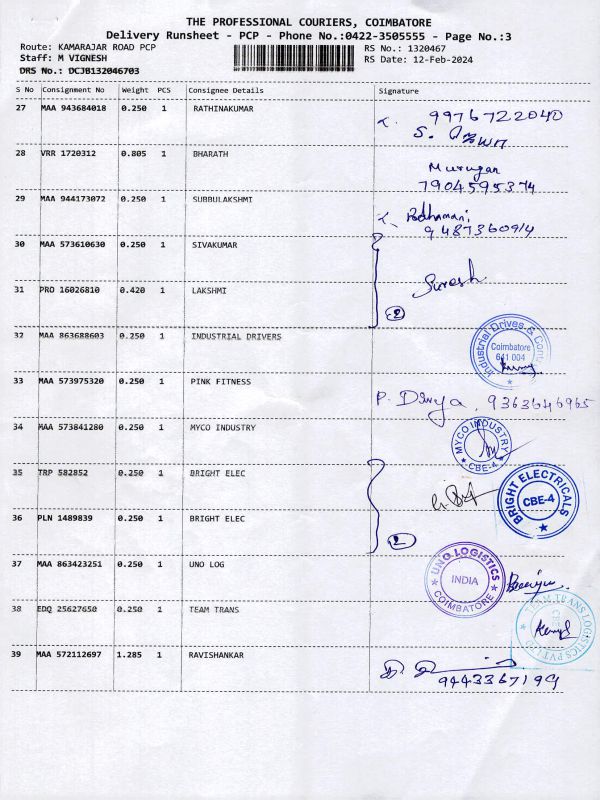 THE PROFESSIONAL COURIERS, COIMBATORE
Delivery Runsheet - PCP - Phone No.:0422-3505555 - Page No.:3
Route: KAMARAJAR ROAD PCP RS No.: 1320467
Staff: M VIGNESH RS Date: 12-Feb-2024
DRS No.: DCJB132046703
S No Consignment No Weight PCS Consignee Details Signature
27 MAA 943684018 0.250 1 RATHINAKUMAR 9976722040
28 VRR 1720312 0.805 1 BHARATH Murugan
7904595374
29 MAA 944173072 0.250 1 SUBBULAKSHMI Padhamani
9487360914
30 MAA 573610630 0.250 1 SIVAKUMAR
Suresh
31 PRO 16026810 0.420 1 LAKSHMI
2
32 MAA 863688603 0.250 1 INDUSTRIAL DRIVERS Industrial Drives &
Coimbatore
641 004
33 MAA 573975320 0.250 1 PINK FITNESS P. Divya. 9363646965
34 MAA 573841280 0.250 1 MYCO INDUSTRY MYCO INDUSTRY
CBE-4
35 TRP 582852 0.250 1 BRIGHT ELEC BRIGHT ELECTRICALS
CBE-4
36 PLN 1489839 0.250 1 BRIGHT ELEC
2
37 MAA 863423251 0.250 1 UNO LOG UNO LOGISTICS
INDIA
COIMBATORE
38 EDQ 25627650 0.250 1 TEAM TRANS TEAM TRANS LOGISTICS PVT LTD
39 MAA 572112697 1.285 1 RAVISHANKAR
9443367199